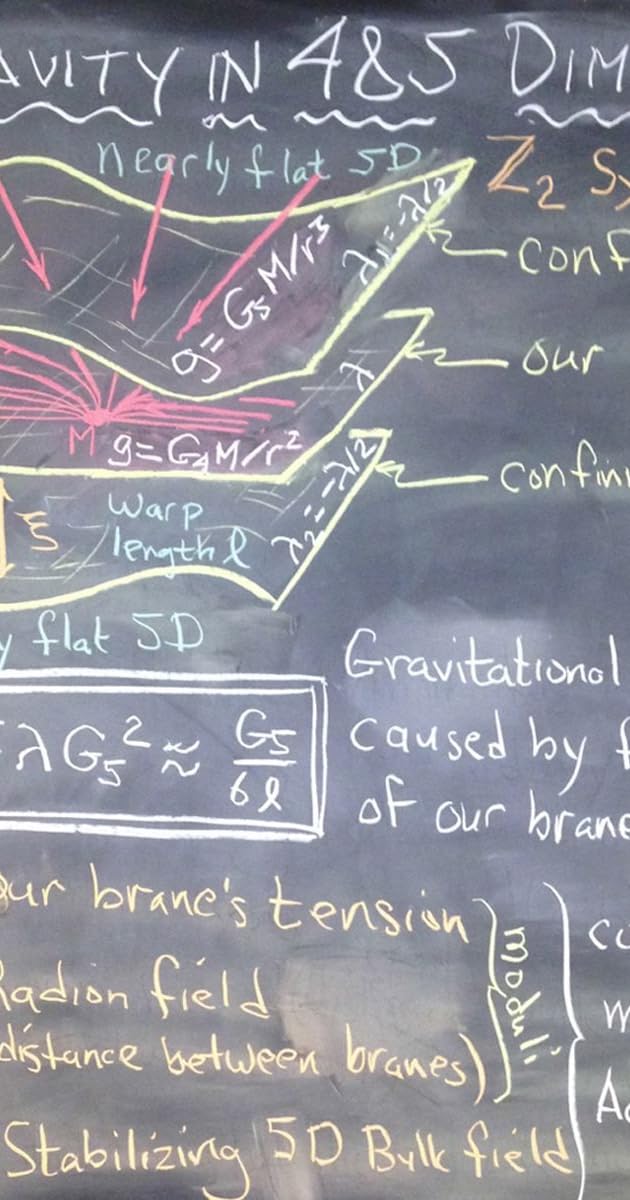 AVITY IN 4&5 DIM
nearly flat 5D
Z₂ Sy
λ₁=-λ/2
g=G₅M/r³
conf
λ
our
M
g=G₄M/r²
λ₂=-λ/2
confin
ξ
Warp
length ℓ
y flat 5D
λG₅² ≈ G₅/6ℓ
Gravitational
caused by f
of our brane
Our brane's tension
Radion field
distance between branes)
moduli
Stabilizing 5D Bulk field